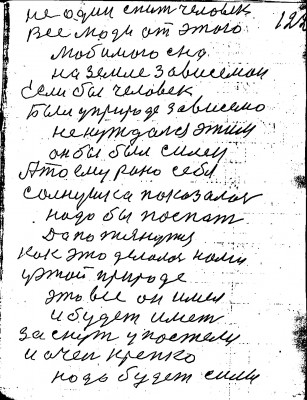 не один спит человек
122
все люди от этого
любимого сна
на земле зависемои
Если бы человек
был у природе зависемо
ненуждался этим
он бы был силен
А то ему рано себя
солнушка показалос
надо бы поспат
да потянутся
как это делалос нами
у этой природе
это все он имел
и будет имет
заснут у постели
и очен крепко
надо будет силы